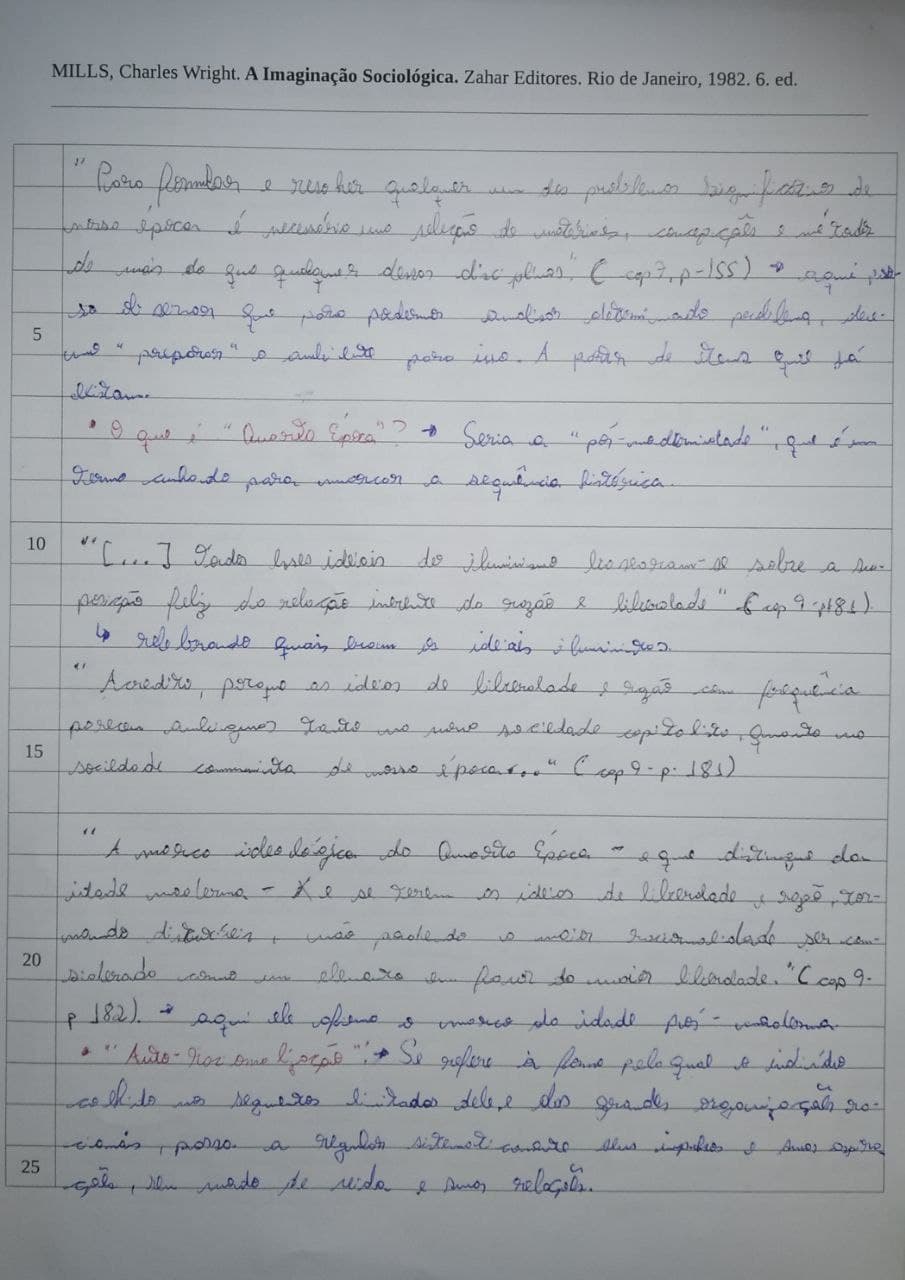 MILLS, Charles Wright. A Imaginação Sociológica. Zahar Editores. Rio de Janeiro, 1982. 6. ed.
"Para formular e resolver qualquer um dos problemas significativos de
nossa época é necessário uma seleção de materiais, concepções e méto
do mais do que qualquer dessas disciplinas" (cap 7, p-155) → aqui pos-
so observar que para podermos analisar determinado problema, deve-
mos "preparar" o ambiente para isso. A partir de itens que já
5
existam.
• O que é "Quarta Época"? → Seria a "pós-modernidade", que é um
termo cunhado para marcar a sequência histórica.
10
"[...] Todos esses ideais do iluminismo basearam-se sobre a su-
posição feliz da relação inerente da razão e liberdade" (cap 9-p181).
↳ relembrando quais eram os ideais iluministas.
"Acredito, porque as ideias de liberdade e razão com frequência
parecem ambíguas tanto na nova sociedade capitalista, quanto na
15
sociedade comunista de nossa época..." (cap 9-p. 181)
"A marca ideológica da Quarta Época - e que distingue da
idade moderna - é se terem as ideias de liberdade e razão, tor-
nando discutíveis, não podendo a maior racionalidade ser con-
20
siderado como um elemento em favor da maior liberdade." (cap 9-
p 182). → aqui ele afirma o marco da idade pós-moderna.
• "Auto-racionalização": → Se refere à forma pela qual o indivíduo
colhido nos segmentos limitados dele, e das grandes organizações ra-
cionais, passa a regular sistematicamente seus impulsos e suas aspira
25
ções, seu modo de vida e suas relações.